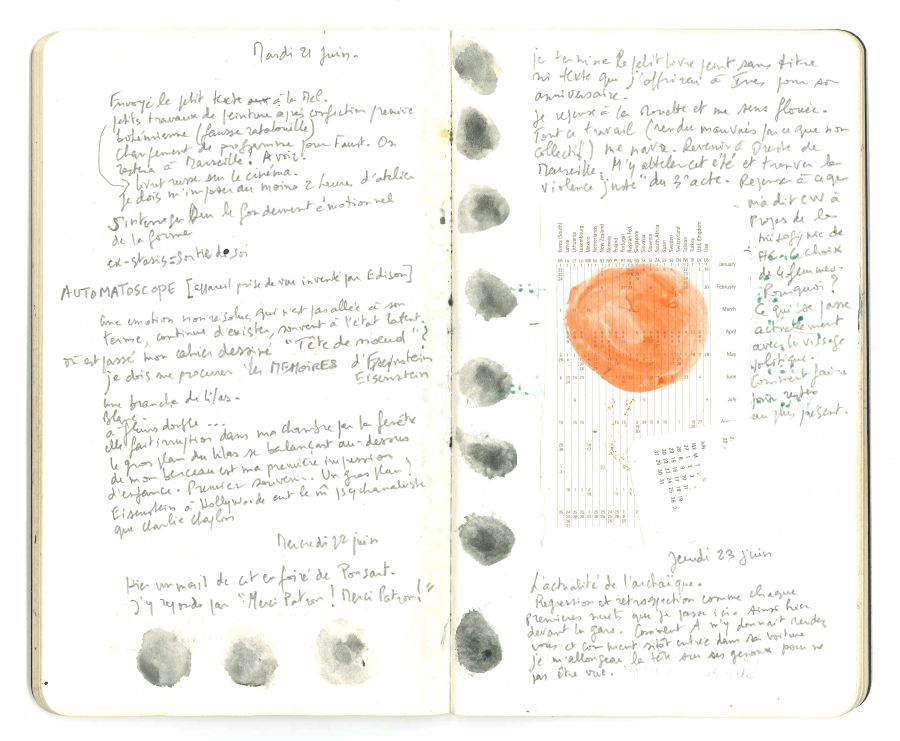 Mardi 21 Juin.
Envoyé le petit texte à la Mel.
petits travaux de peinture après confection première
bohémienne (fausse ratatouille)
Changement de programme pour Faust. On
restera à Marseille. A voir.
livret russe sur le cinéma.
je dois m'imposer au moins 2 heures d'atelier
S'interroger sur le fondement émotionnel
de la forme
ex-stasis = sortie de soi
AUTOMATOSCOPE [appareil prise de vue inventé par Edison]
Une émotion non résolue, qui n'est pas allée à son
terme, continue d'exister, souvent à l'état latent.
où est passé mon cahier dessiné "Tête de nœud"?
je dois me procurer les MEMOIRES d'
Eisenstein
une branche de lilas.
Blanc.
à fleurs double...
elle fait irruption dans ma chambre par la fenêtre
le gros plan du lilas se balançant au-dessous
de mon berceau est ma première impression
d'enfance. Premier souvenir. Un gros plan!
Eisenstein à Hollywood eut le m̂ psychanaliste
que Charlie Chaplin
Mercredi 22 juin
Hier un mail de cet enfoiré de Ponsart.
J'y réponds par "Merci Patron! Merci Patron!"
je termine le petit livre peint sans titre
ni texte que j'offrirai à Yves pour son
anniversaire.
je rejoue à la roulette et me sens flouée.
Tout ce travail (rendu mauvais parce que non
collectif) me navre. Revenir à Oreste de
Marseille. M'y atteler cet été et trouver la
violence "juste" du 3e acte. Repenser à ce que
m'a dit CW à
propos de la
misogynie de
choix
de 4 femmes.
Pourquoi?
Ce qui se passe
actuellement
avec le visage
politique.
Comment faire
pour rester
au plus présent.
Korea (South)
Latvia
Lithuania
Luxembourg
Mexico
Netherlands
New Zealand
Norway
Poland
Portugal
Russian Fed.
Singapore
Slovakia
Slovenia
South Africa
Spain
Sweden
Switzerland
Turkey
Utd. Kingdom
Usa
January
February
March
April
May
June
July
Jeudi 23 juin
L'actualité de l'archaïque.
Régression et rétrospection comme chaque
premières nuits que je passe ici. Ainsi hier
devant la gare. Comment A m'y donnait rendez
vous et comment sitôt entrée dans sa voiture
je m'allongeai, la tête sur ses genoux pour ne
pas être vue.